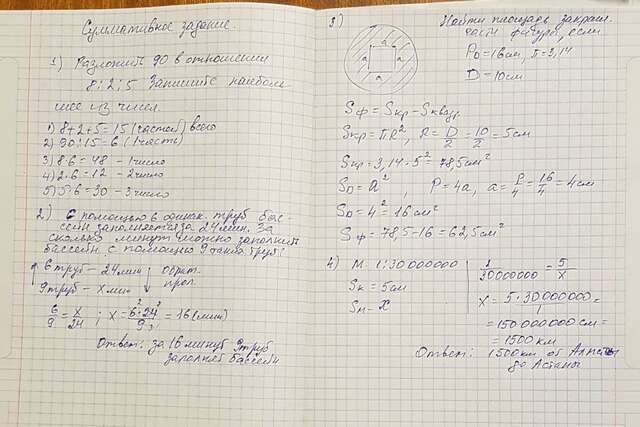 Суммативное задание.
1) Разложить 90 в отношении
8:2:5 Запишите наиболь
шее из чисел.
1) 8+2+5=15 (частей) всего
2) 90:15=6 (1 часть)
3) 8·6=48 – 1 число
4) 2·6=12 – 2 число
5) 5·6=30 – 3 число
2) С помощью 6 одинак. труб бас-
сейн заполняется за 24 мин. За
сколько минут можно заполнить
бассейн с помощью 9 таких труб?
6 труб – 24 мин обрат.
9 труб – x мин проп.
6/9 = x/24 ; x = 6·24/9 = 16 (мин)
Ответ: за 16 минут 9 труб
заполнят бассейн
3) Найти площадь закраш.
части фигуры, если
a a a a
P□ = 16 см, π=3,14
D = 10 см
Sф = Sкр – Sквадр.
Sкр = πR², R = D/2 = 10/2 = 5 см
Sкр = 3,14·5² = 78,5 см²
S□ = a², P = 4a, a = P/4 = 16/4 = 4 см
S□ = 4² = 16 см²
Sф = 78,5–16 = 62,5 см²
4) М 1:30000000 1/30000000 = 5/x
Sк = 5 см
Sм = x
x = 5·30000000/1 =
= 150 000 000 см =
= 1500 км
Ответ: 1500 км от Алматы
до Астаны